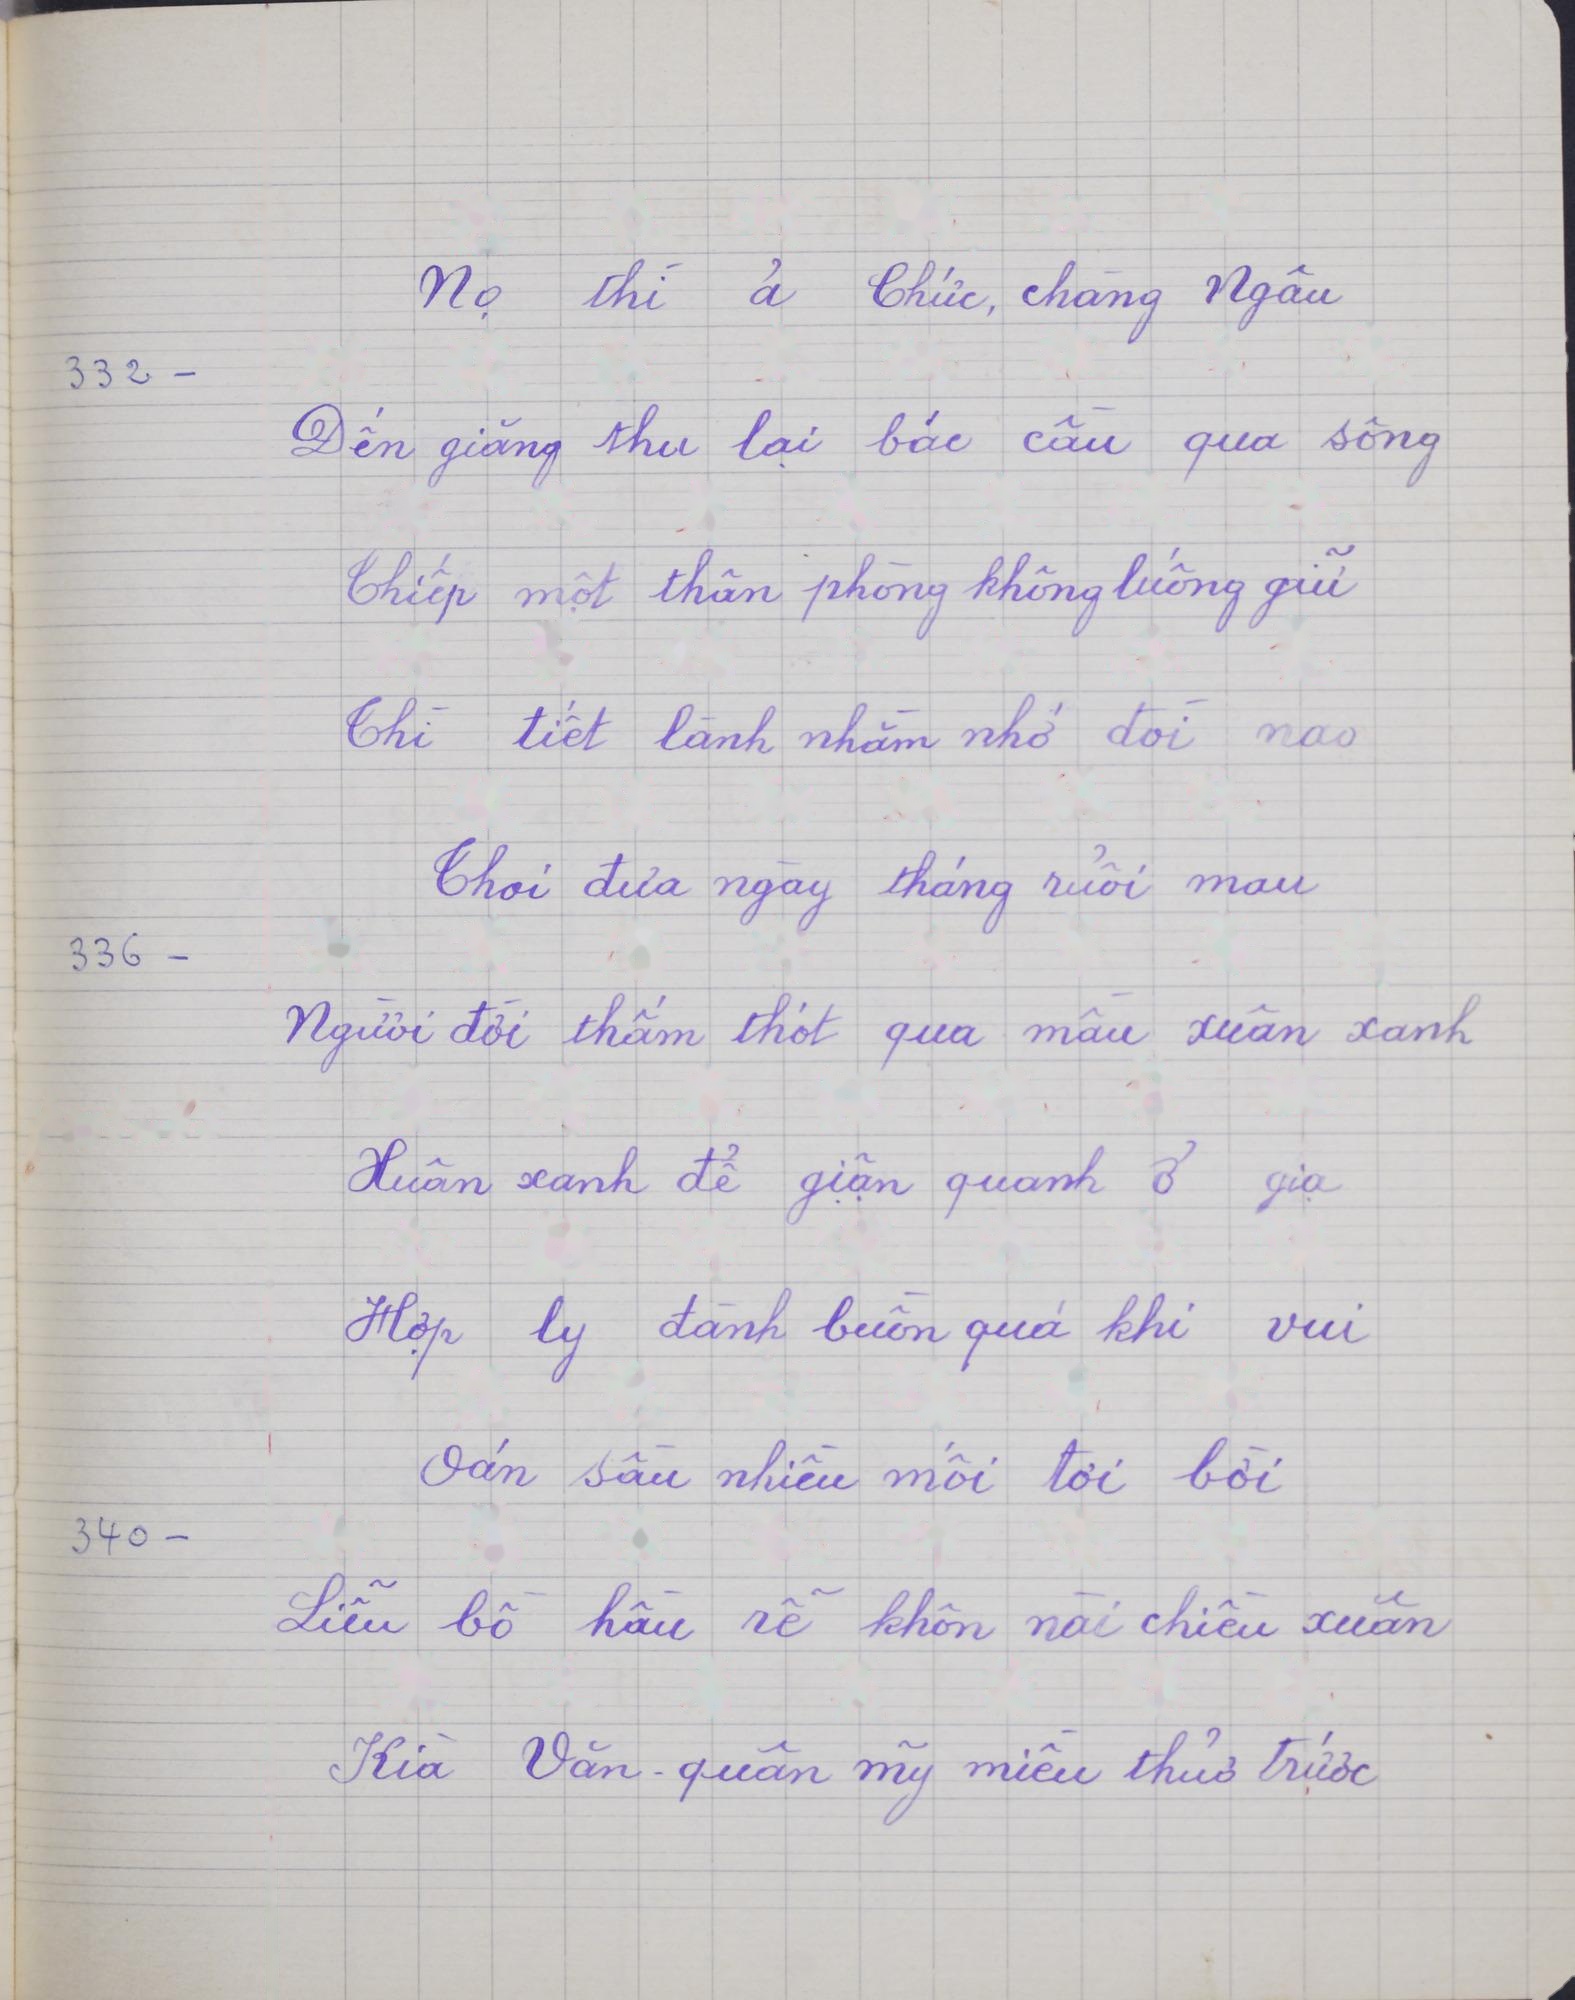 Nọ thì ả Chức, chàng Ngâu
332 -
Đến giăng thu lại bắc cầu qua sông
Thiếp một thân phòng không luống giữ
Thì tiết lành nhầm nhỡ đòi nao
Thoi đưa ngày tháng ruổi mau
336 -
Người đời thấm thót qua mầu xuân xanh
Xuân xanh để giận quanh ở giạ
Hợp ly đành buồn quá khi vui
Oán sầu nhiều mối tơi bời
340 -
Liễu bồ hầu rẽ khôn nài chiều xuân
Kìa Văn-quân mỹ miều thuở trước